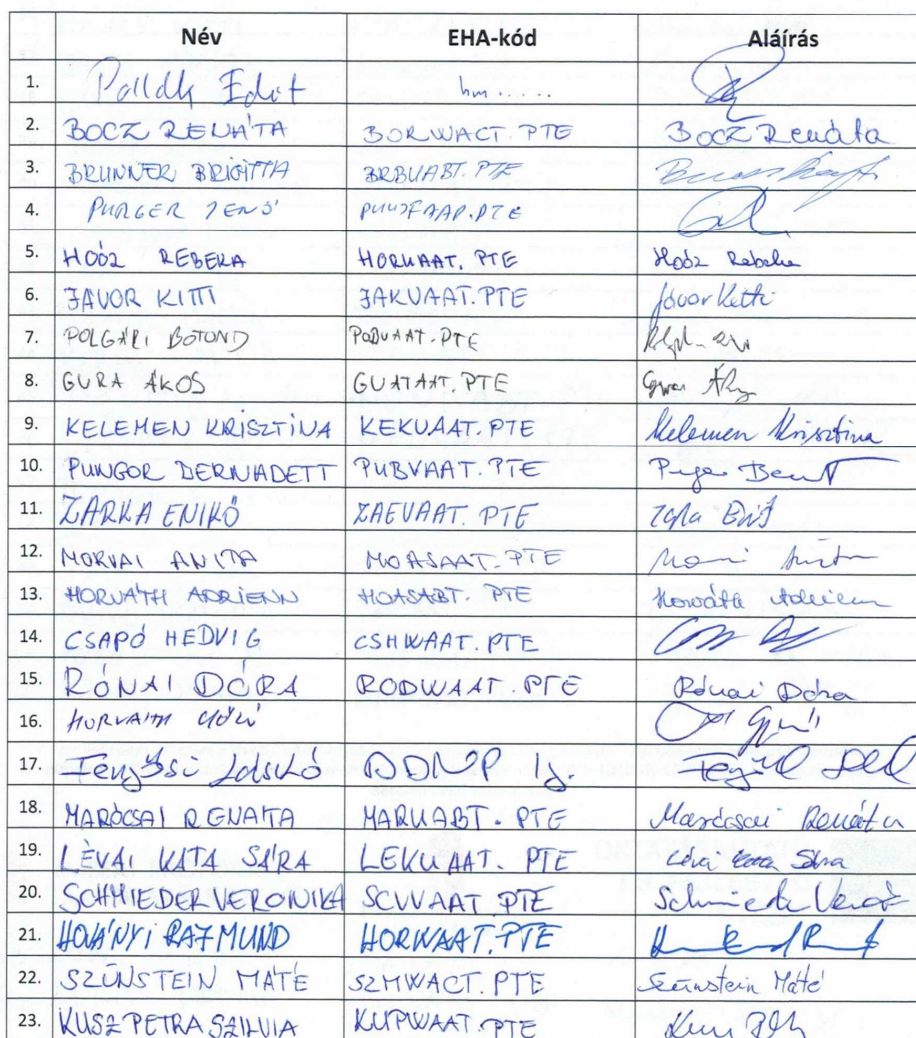 Név EHA-kód Aláírás
1. Edit hm.....
2. BOCZ RENÁTA BORWACT.PTE Bocz Renáta
3. BRUNNER BRIGITTA BRBUABT.PTE
4. PURGER JENŐ PUUJFAAP.PTE
5. HOÓZ REBEKA HORUAAT.PTE Hoóz Rebeka
6. JÁVOR KITTI JAKVAAT.PTE Jávor Kitti
7. POLGÁRI BOTOND POBVAAT.PTE
8. GURA ÁKOS GUATAAT.PTE
9. KELEMEN KRISZTINA KEKUAAT.PTE Kelemen Krisztina
10. PUNGOR BERNADETT PUBVAAT.PTE
11. ZARKA ENIKŐ ZAEVAAT.PTE
12. MORVAI ANITA MOASAAT.PTE
13. HORVÁTH ADRIENN HOASABT.PTE Horváth Adrienn
14. CSAPÓ HEDVIG CSHWAAT.PTE
15. RÓNAI DÓRA RODWAAT.PTE Rónai Dóra
16. HORVÁTH
17. DDNP Ig.
18. MARÓCSAI RENÁTA MARUABT.PTE Marócsai Renáta
19. LÉVAI KATA SÁRA LEKUAAT.PTE
20. SCHMIEDER VERONIKA SCVVAAT.PTE
21. HOVÁNYI RAJMUND HORWAAT.PTE
22. SZŰNSTEIN MÁTÉ SZMWACT.PTE Szűnstein Máté
23. KUSZ PETRA SZILVIA KUPWAAT.PTE